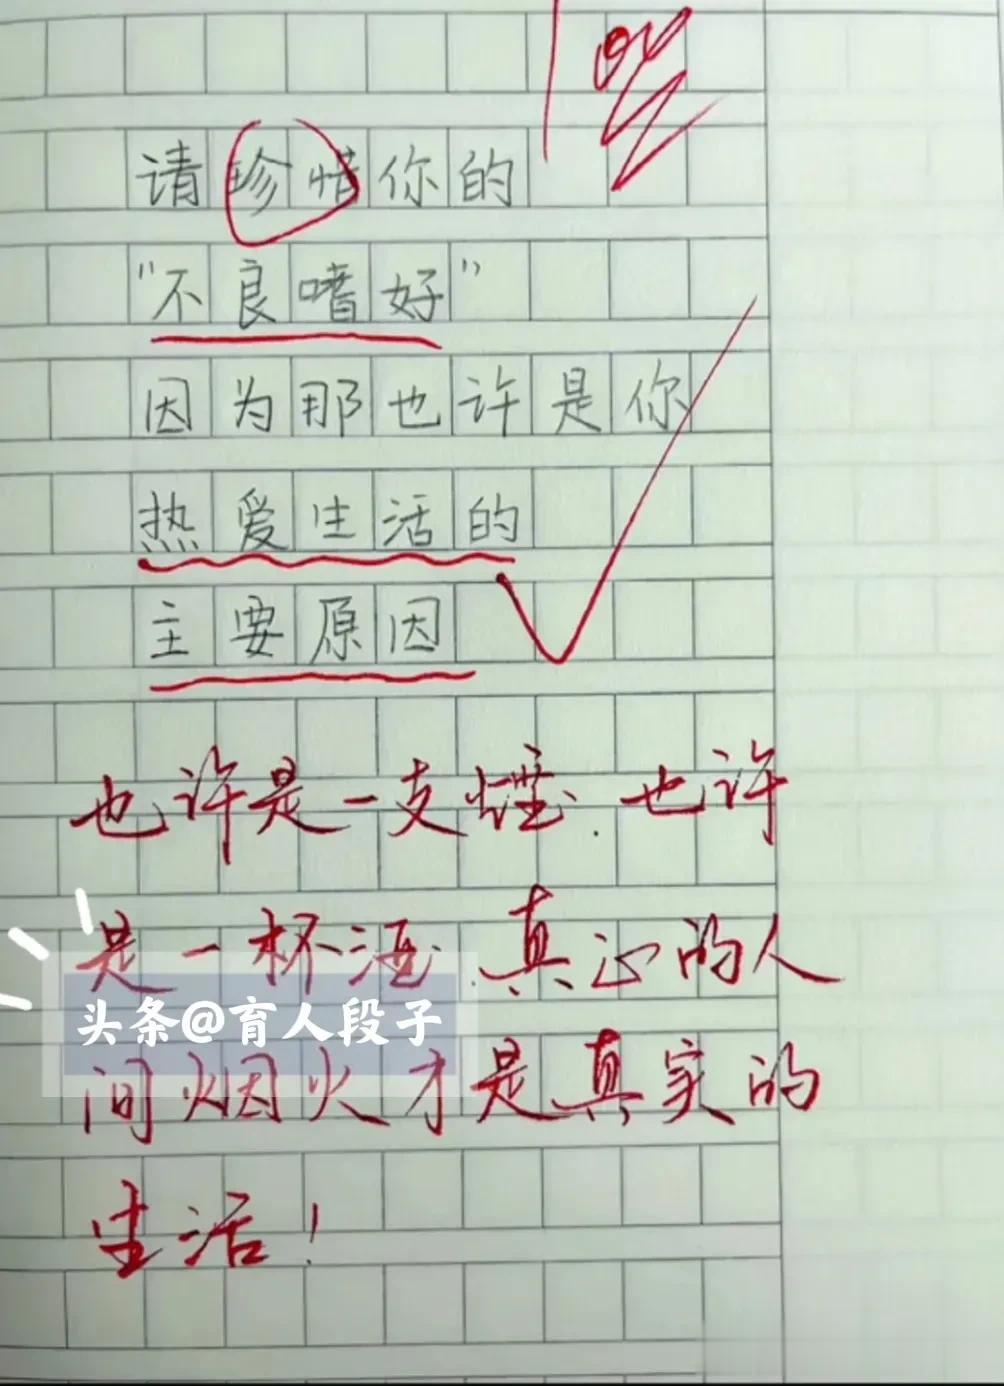 100
请珍惜你的
“不良嗜好”
因为那也许是你
热爱生活的
主要原因
也许是一支煙.也许
是一杯酒.真正的人
头条@育人段子
间烟火才是真实的
生活!